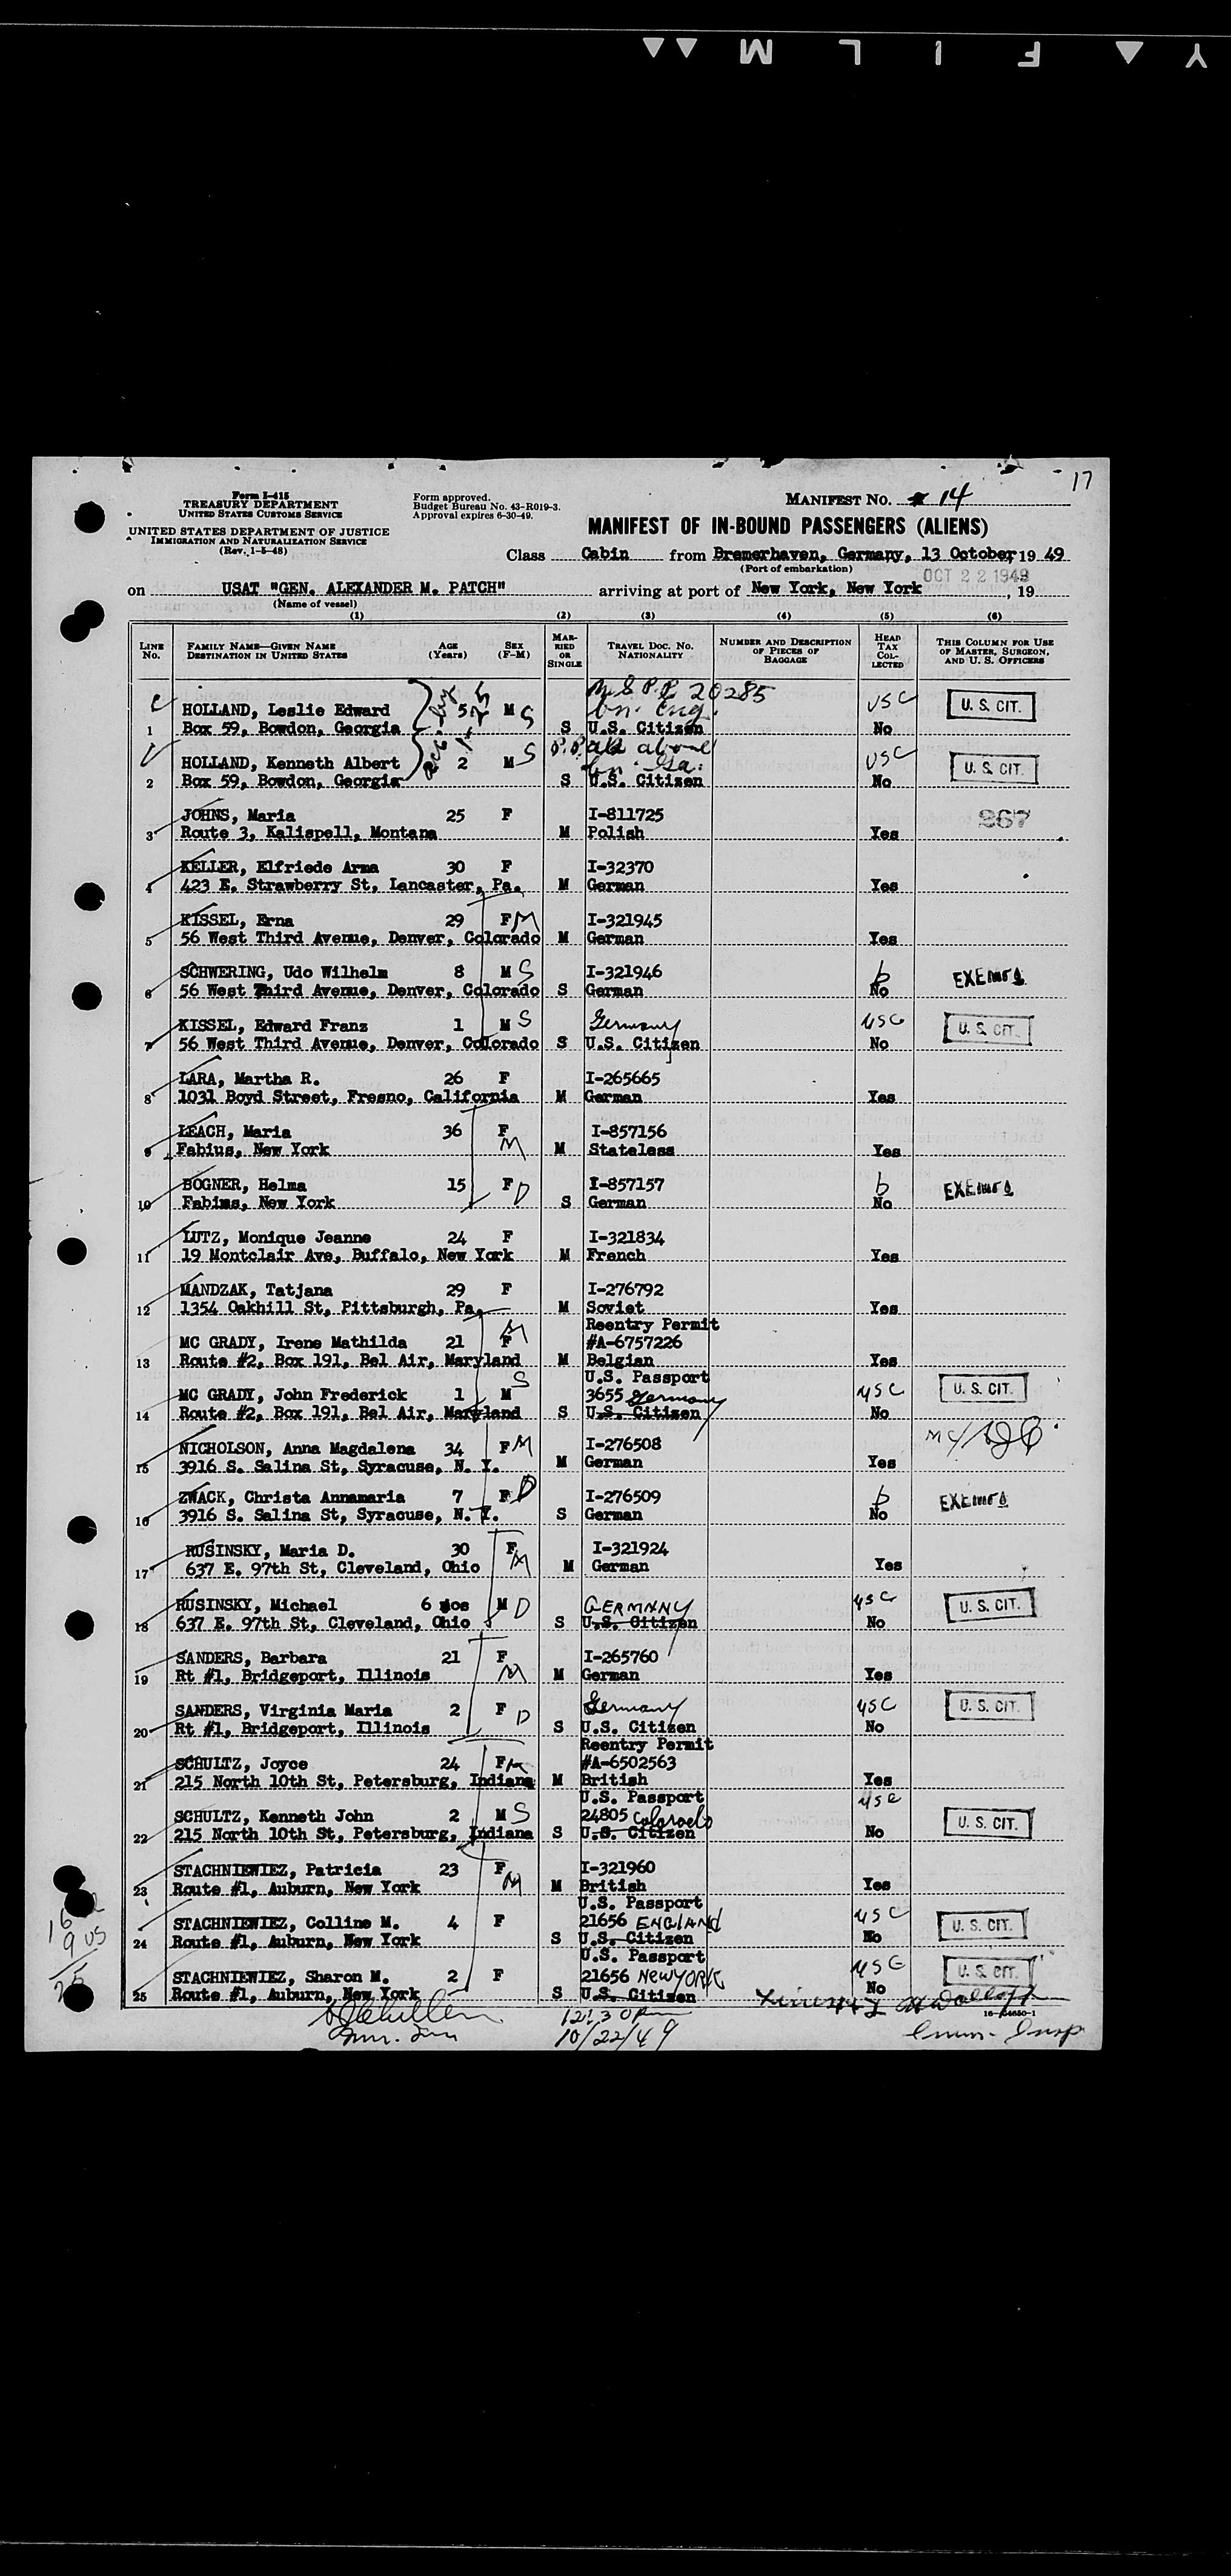 Y F I L M
17
Form I-415
TREASURY DEPARTMENT
UNITED STATES CUSTOMS SERVICE
UNITED STATES DEPARTMENT OF JUSTICE
IMMIGRATION AND NATURALIZATION SERVICE
(Rev. 1-5-48)
Form approved.
Budget Bureau No. 43-R019-3.
Approval expires 6-30-49.
MANIFEST NO. 14
MANIFEST OF IN-BOUND PASSENGERS (ALIENS)
Class Cabin from Bremerhaven, Germany, 13 October, 19 49
(Port of embarkation)
OCT 22 1949
on USAT "GEN. ALEXANDER M. PATCH" arriving at port of New York, New York, 19
(Name of vessel)
(1) (2) (3) (4) (5) (6)
LINE NO. FAMILY NAME—GIVEN NAME DESTINATION IN UNITED STATES AGE (Years) SEX (F-M) MARRIED OR SINGLE TRAVEL DOC. NO. NATIONALITY NUMBER AND DESCRIPTION OF PIECES OF BAGGAGE HEAD TAX COLLECTED THIS COLUMN FOR USE OF MASTER, SURGEON, AND U. S. OFFICERS
U S P.P. 20285
HOLLAND, Leslie Edward 5 M S bn. Eng. USC U. S. CIT.
1 Box 59, Bowdon, Georgia S U.S. Citizen No
P.P. as above
HOLLAND, Kenneth Albert 2 M S bn. Ga. USC U. S. CIT.
2 Box 59, Bowdon, Georgia S U.S. Citizen No
JOHNS, Maria 25 F I-811725 867
3 Route 3, Kalispell, Montana M Polish Yes
KELLER, Elfriede Arma 30 F I-32370
4 423 E. Strawberry St, Lancaster, Pa. M German Yes
KISSEL, Erna 29 F M I-321945
5 56 West Third Avenue, Denver, Colorado M German Yes
SCHWERING, Udo Wilhelm 8 M S I-321946 b EXEMPT
6 56 West Third Avenue, Denver, Colorado S German No
KISSEL, Edward Franz 1 M S Germany USC U. S. CIT.
7 56 West Third Avenue, Denver, Colorado S U.S. Citizen No
LARA, Martha R. 26 F I-265665
8 1031 Boyd Street, Fresno, California M German Yes
LEACH, Maria 36 F M I-857156
9 Fabius, New York M Stateless Yes
BOGNER, Helma 15 F D I-857157 b EXEMPT
10 Fabims, New York S German No
LUTZ, Monique Jeanne 24 F I-321834
11 19 Montclair Ave, Buffalo, New York M French Yes
MANDZAK, Tatjana 29 F I-276792
12 1354 Oakhill St, Pittsburgh, Pa. M Soviet Yes
Reentry Permit
MC GRADY, Irene Mathilda 21 F M #A-6757226
13 Route #2, Box 191, Bel Air, Maryland M Belgian Yes
U.S. Passport
MC GRADY, John Frederick 1 M S 3655 Germany USC U. S. CIT.
14 Route #2, Box 191, Bel Air, Maryland S U.S. Citizen No
NICHOLSON, Anna Magdalena 34 F M I-276508
15 3916 S. Salina St, Syracuse, N. Y. M German Yes
ZWACK, Christa Annamaria 7 F D I-276509 b EXEMPT
16 3916 S. Salina St, Syracuse, N. Y. S German No
RUSINSKY, Maria D. 30 F M I-321924
17 637 E. 97th St, Cleveland, Ohio M German Yes
RUSINSKY, Michael 6 mos M D GERMANY USC U. S. CIT.
18 637 E. 97th St, Cleveland, Ohio S U.S. Citizen No
SANDERS, Barbara 21 F M I-265760
19 Rt #1, Bridgeport, Illinois M German Yes
SANDERS, Virginia Maria 2 F D Germany USC U. S. CIT.
20 Rt #1, Bridgeport, Illinois S U.S. Citizen No
Reentry Permit
SCHULTZ, Joyce 24 F M #A-6502563
21 215 North 10th St, Petersburg, Indiana M British Yes
U.S. Passport
SCHULTZ, Kenneth John 2 M S 24805 Colorado USC U. S. CIT.
22 215 North 10th St, Petersburg, Indiana S U.S. Citizen No
STACHNIEWIEZ, Patricia 23 F M I-321960
23 Route #1, Auburn, New York M British Yes
U.S. Passport
STACHNIEWIEZ, Colline M. 4 F 21656 ENGLAND USC U. S. CIT.
24 Route #1, Auburn, New York S U.S. Citizen No
U.S. Passport
STACHNIEWIEZ, Sharon M. 2 F 21656 NEW YORK USC U. S. CIT.
25 Route #1, Auburn, New York S U.S. Citizen No
9 US
25
12:30 pm
10/22/49
Imm. Insp